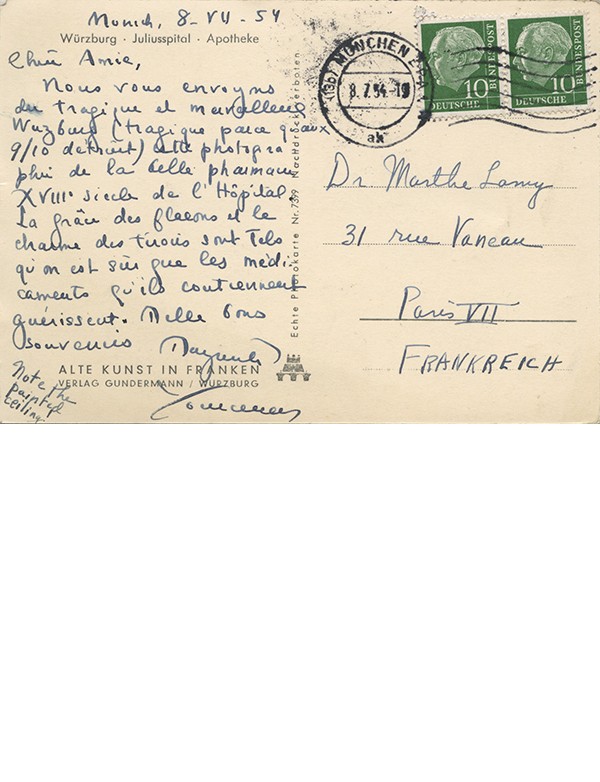 Munich, 8-VII-54
Würzburg · Juliusspital · Apotheke
Chère Amie,
Nous vous envoyons
du tragique et merveilleux
Wuzburg (tragique parce qu'aux
9/10 détruit) cette photogra
phie de la belle pharmacie
XVIIIe siecle de l'Hôpital.
La grâce des flacons et le
charme des tiroirs sont tels
qu'on est sûr que les médi-
caments qu'ils contiennent
guérissent. Mille bons
souvenirs
ALTE KUNST IN FRANKEN
VERLAG GUNDERMANN / WÜRZBURG
Note the
painted
ceiling
Echte Photokarte Nr. 7379 Nachdruck verboten
(13b) MÜNCHEN
8.7.54-19
ak
10
DEUTSCHE
BUNDESPOST
10
DEUTSCHE
BUNDESPOST
Dr Marthe Lamy
31 rue Vaneau
Paris VII
FRANKREICH